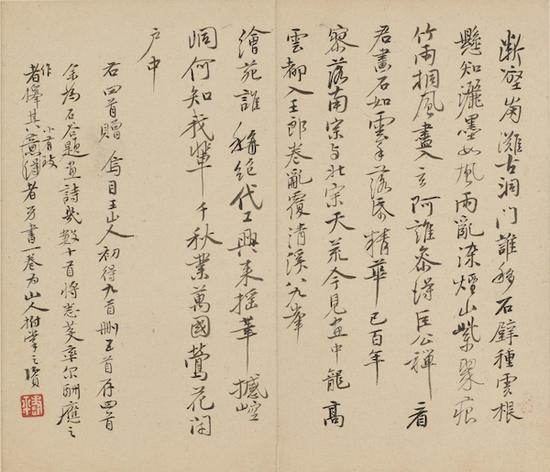 斷壑崩灘古洞門誰移石壁種雲根
懸知灑墨如風雨亂染煙山紫翠痕
竹雨桐風盡入玄阿誰參得巨公禪看
君畫石如雲手落紙精華已百年
寥落南宗与北宗天荒今見畫中龍高
雲都入王郎卷亂覆清溪八九峯
繪苑誰稱絕代工興來揺筆撼崆
峒何知我輩千秋業萬國鶯花閉
户中
右四首贈爲目王山人初得九首刪五首存四首
余為石谷題畫詩幾數十首將悉芟率尔酬應之
作小有致
者擇其意得者另書一卷为山人拊掌之資